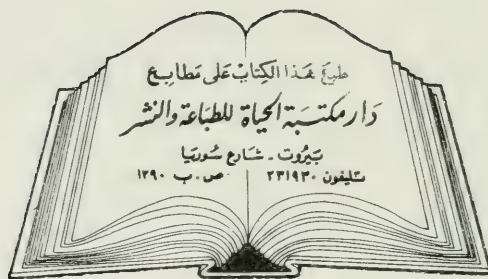 طبع هذا الكتاب على مطابع
دار مكتبة الحياة للطباعة والنشر
بيروت - شارع سوريا
تليفون ٢٣١٩٣٠ ص. ب ١٢٩٠